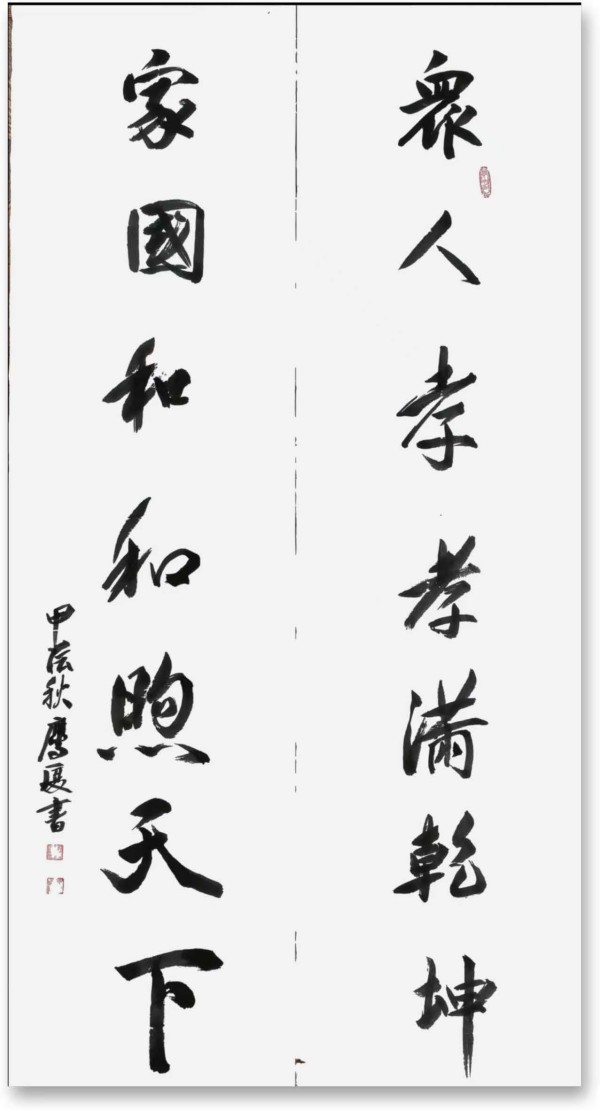 眾人孝孝滿乾坤
家國和和煦天下
甲辰秋鷹厦書